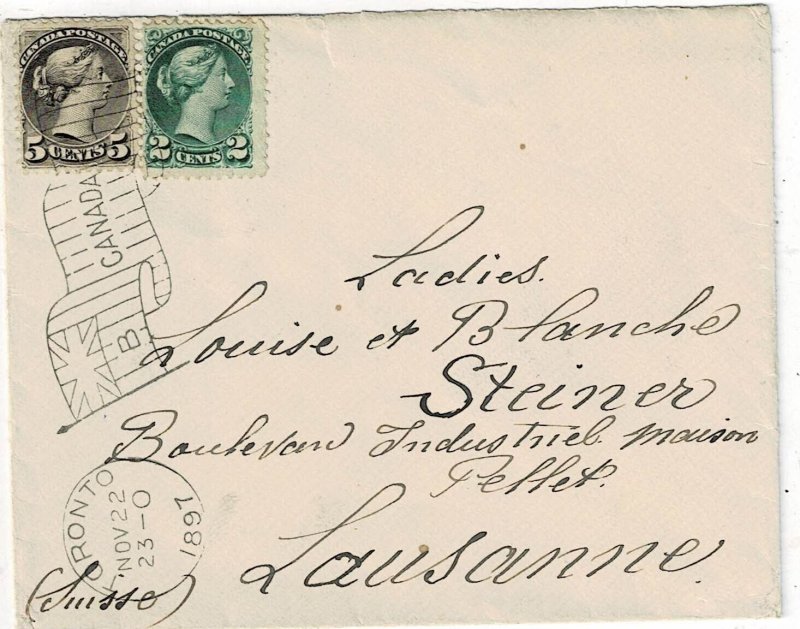 CANADA POSTAGE
5 CENTS 5
CANADA POSTAGE
2 CENTS 2
CANADA
B
Ladies.
Louise et Blanche
Steiner
Boulevard Industriel maison
Pellet.
Lausanne.
(Suisse)
TORONTO
NOV 22
23-0
1897